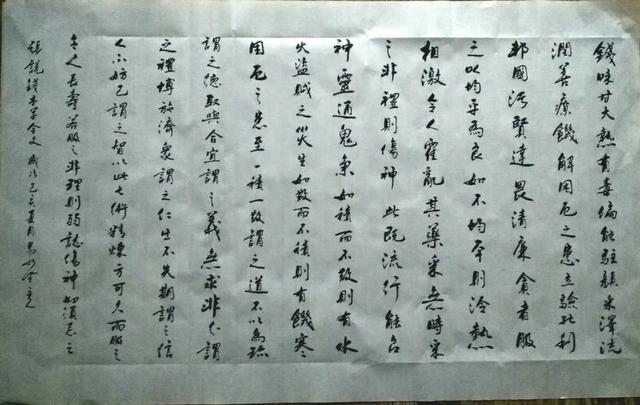 錢味甘大熱有毒偏能駐顏采澤流
潤善療饑解困厄之患立驗能利
邦國污賢達畏清廉貪者服
之以均平為良如不均平則冷熱
相激令人霍亂其藥采無時采
之非禮則傷神此既流行能召
神靈通鬼氣如積而不散則有水
火盜賊之災生如散而不積則有饑寒
困厄之患至一積一散謂之道不以為珍
謂之德取與合宜謂之義無求非分謂
之禮博施濟衆謂之仁出不失期謂之信
人不妨己謂之智以此七術精煉方可久而服之
令人長壽若服之非理則弱志傷神切須忌之
張說錢本草全文 歲次己亥夏月